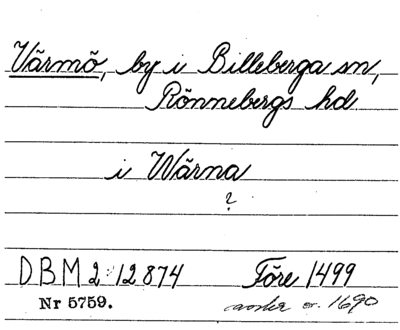 Värmö, by i Billeberga sn,
Rönnebergs hd.
i Wärna
?
DBM 2:12874 Före 1499
Nr 5759. c. 1690